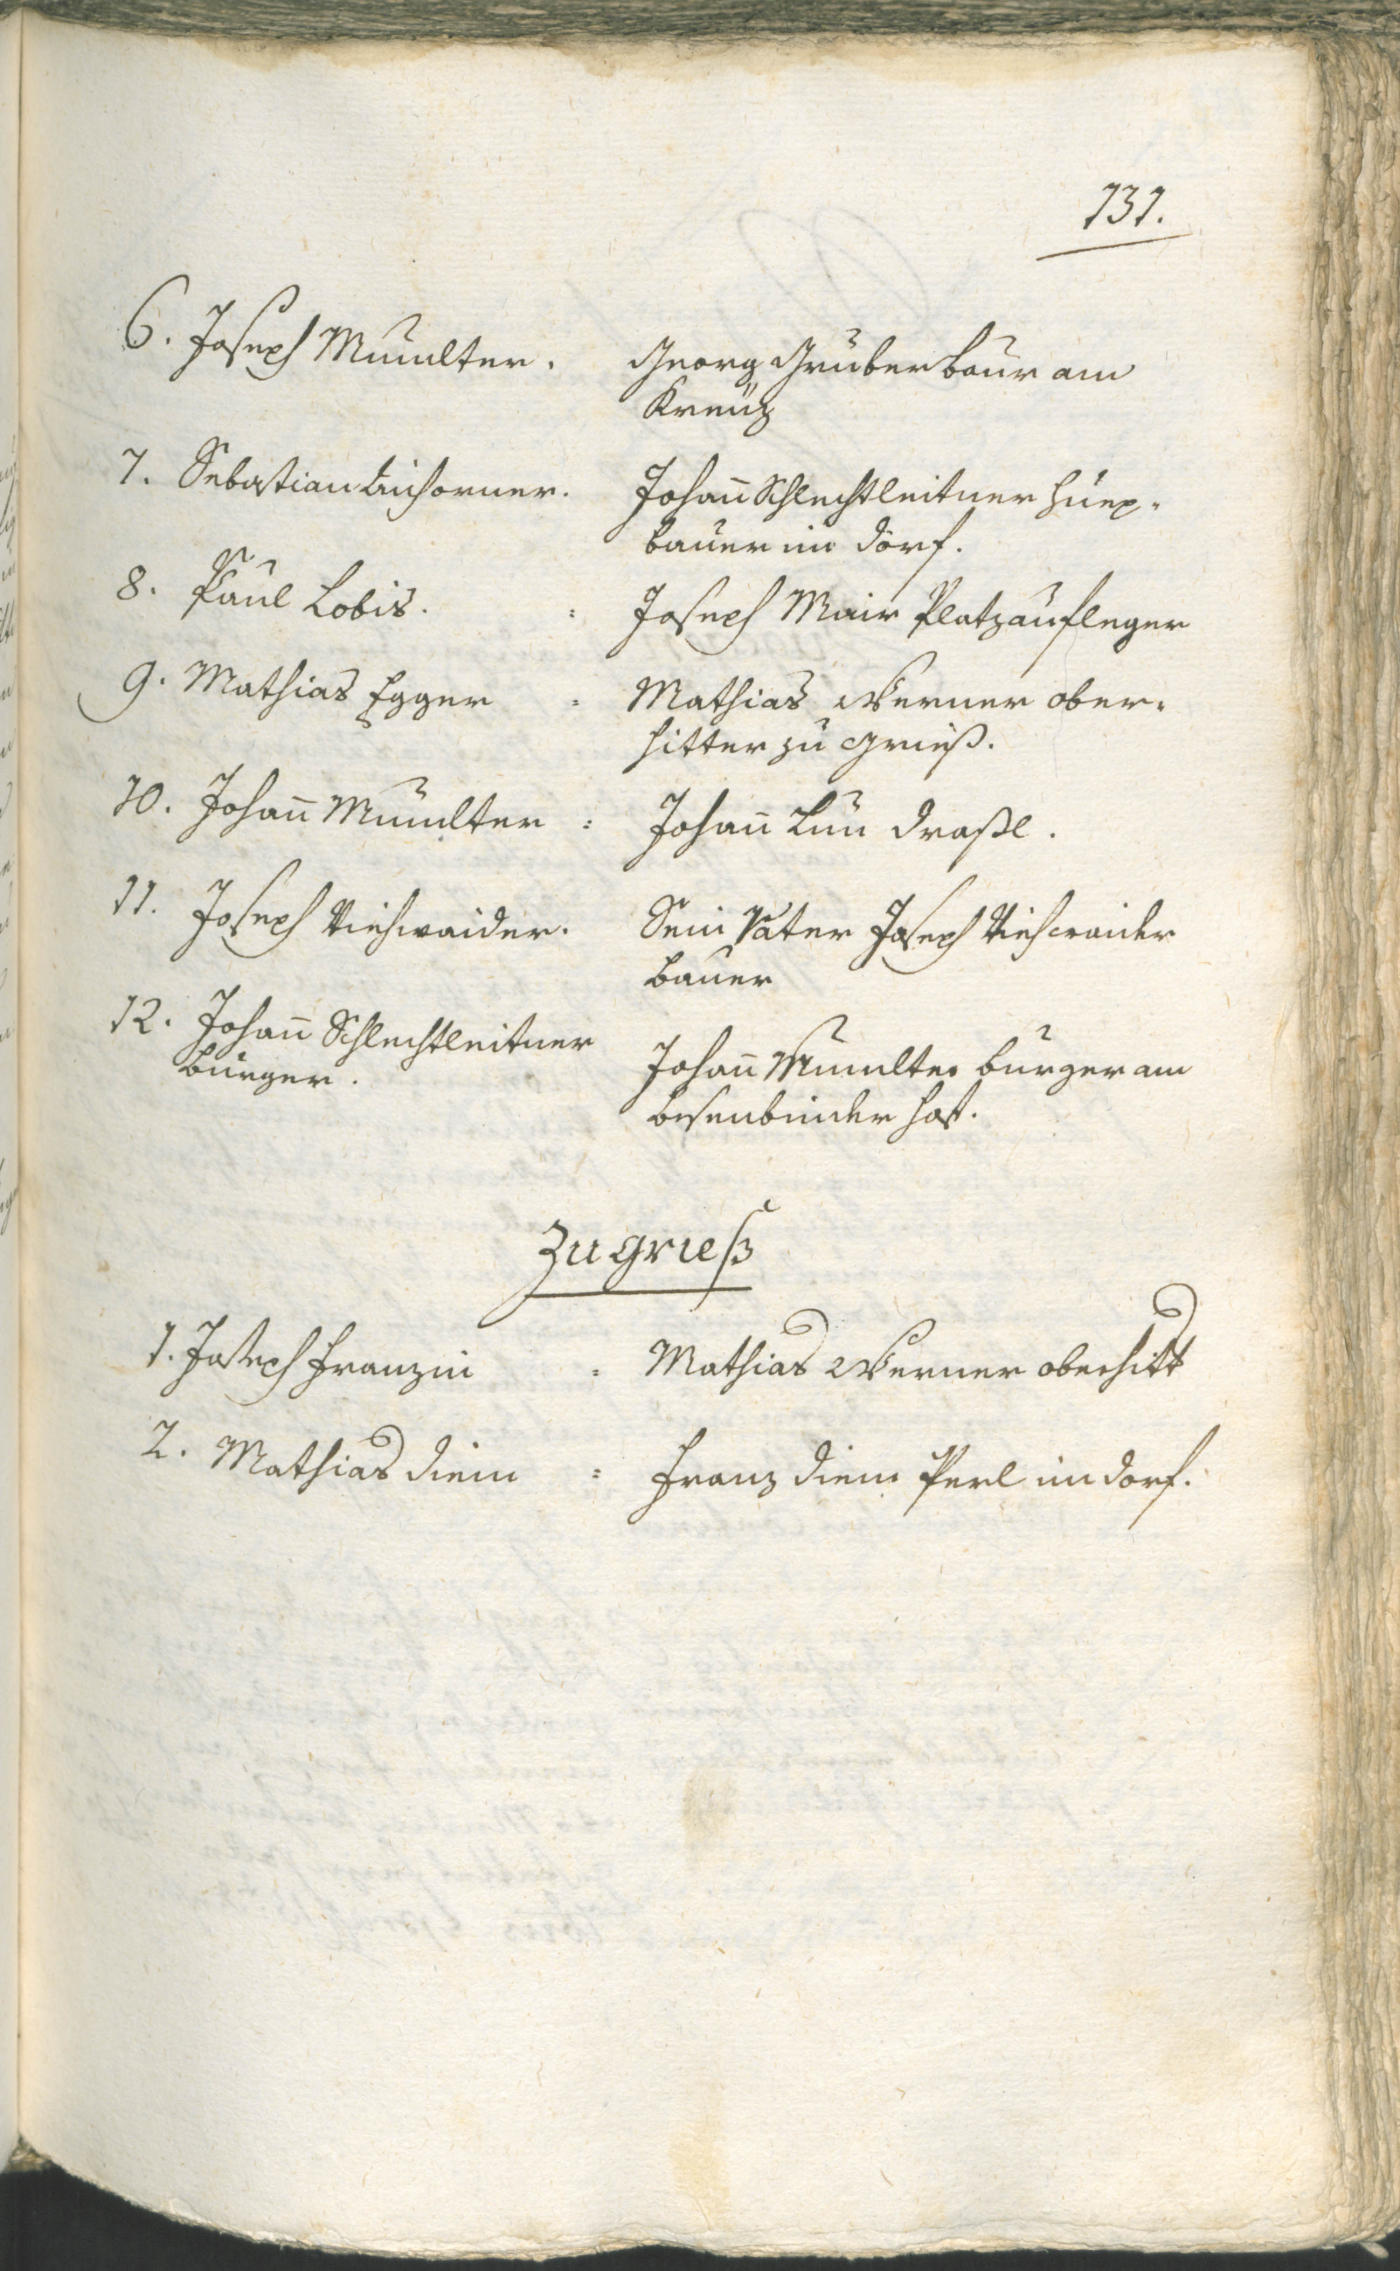 131.
6. Joseph Mumlter. Georg Gruber baur am
Kreuz
7. Sebastian Aichorner. Johann Schlechtleitner Huep-
bauer im dorf.
8. Paul Lobis. : Joseph Mair Platzaufleger
9. Mathias Egger : Mathias Werner ober-
hitter zu Grieß.
10. Johann Mumlter : Johann Lun Draßl.
11. Joseph Viehwaider. Sein Vater Joseph Viehwaider
bauer
12. Johann Schlechtleitner
burger. Johann Mumlter burger am
besenbinder hof.
Zu Grieß
1. Joseph Franzin : Mathias Werner oberhitt
2. Mathias Diem : Franz Diem Perl im dorf.